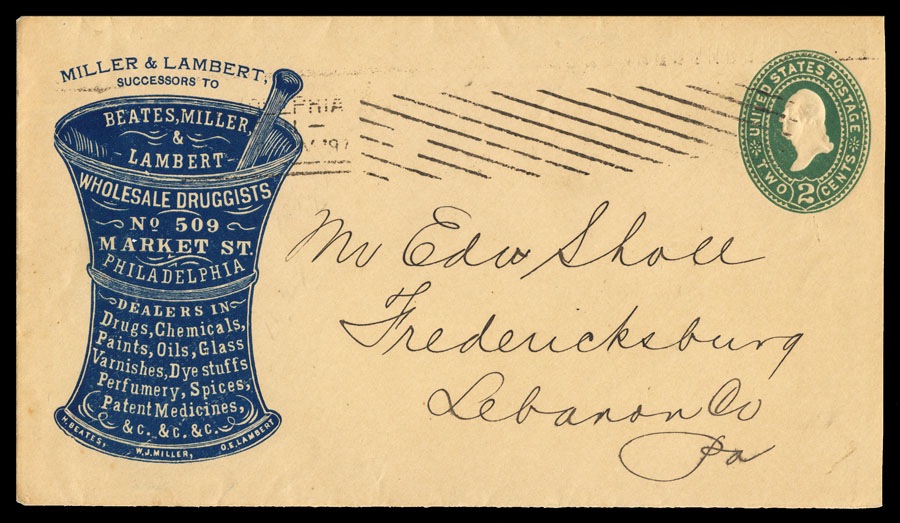 MILLER & LAMBERT,
SUCCESSORS TO
BEATES, MILLER,
&
LAMBERT
WHOLESALE DRUGGISTS
No 509
MARKET ST.
PHILADELPHIA
DEALERS IN
Drugs, Chemicals,
Paints, Oils, Glass
Varnishes, Dye stuffs
Perfumery, Spices,
Patent Medicines,
&c. &c. &c.
H. BEATES, W. J. MILLER, O. E. LAMBERT
UNITED STATES POSTAGE.
TWO 2 CENTS
Mr Edw Sholl
Fredericksburg
Lebanon Co
Pa